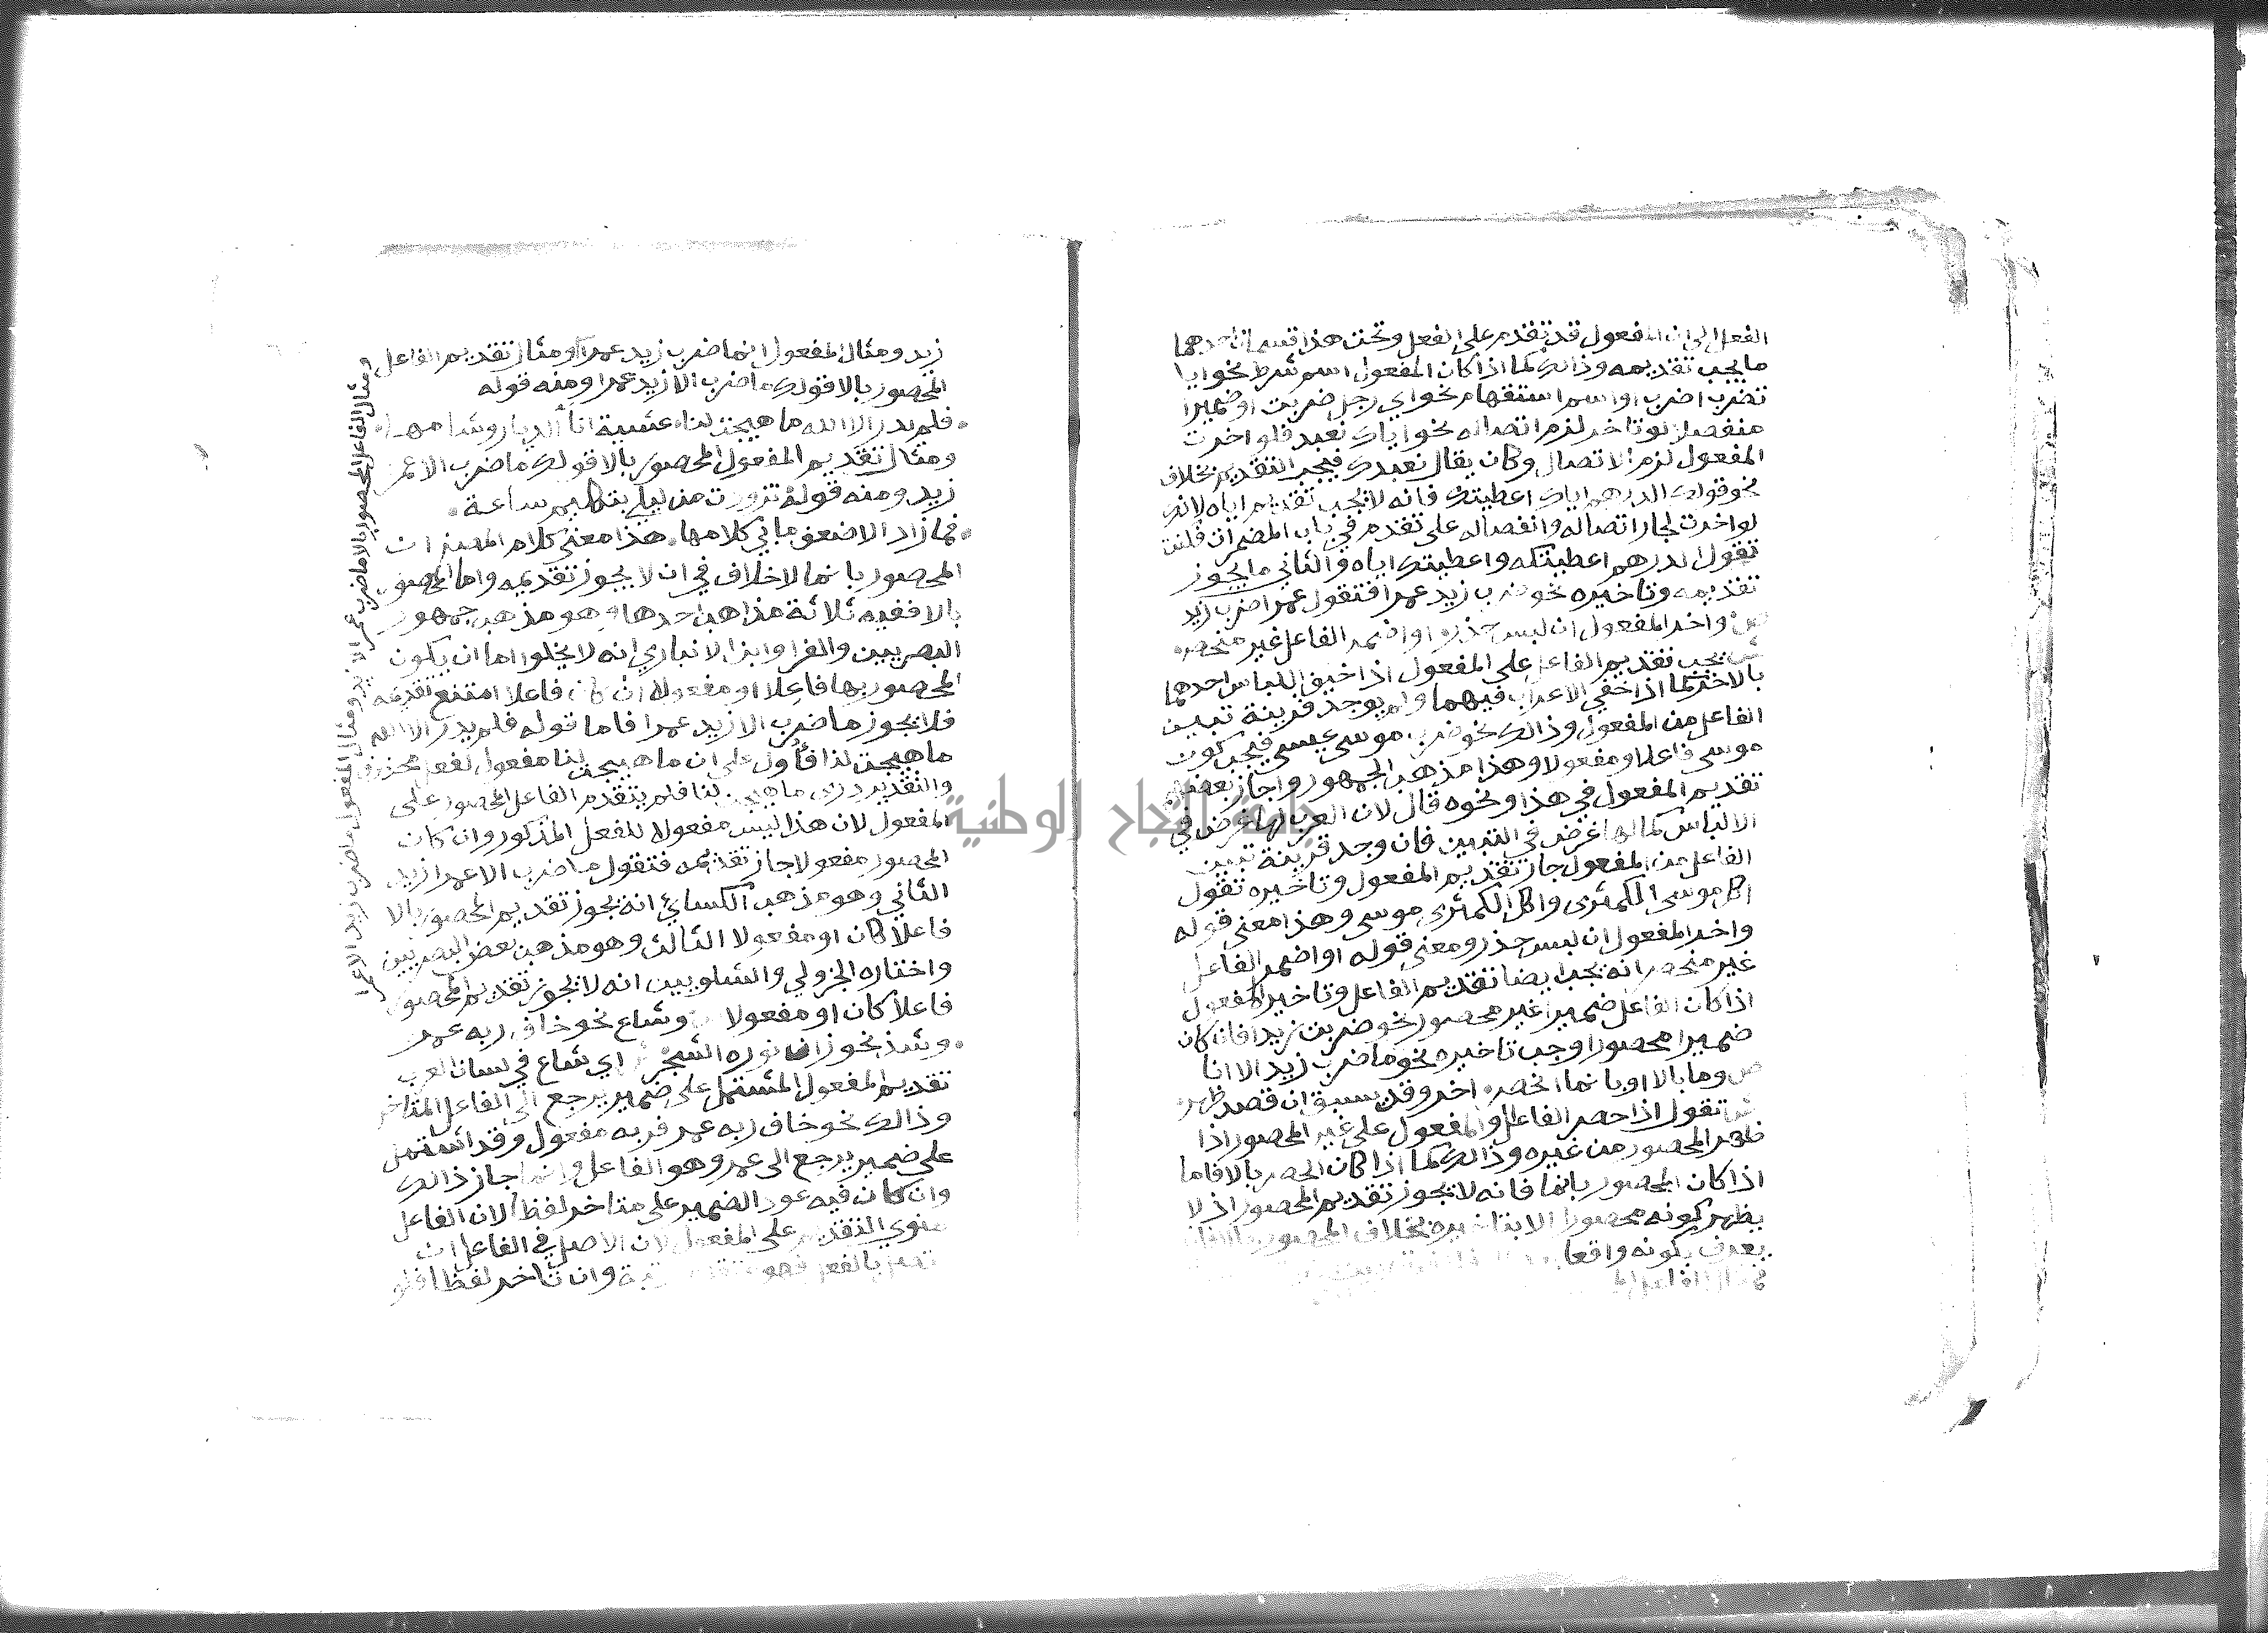 الفعل الى ان المفعول قد تقدم على الفعل وتحت هذا قسمان احدهما
ما يجب تقديمه وذالك كما اذا كان المفعول اسم شرط نحو ايا
تضرب اضرب او اسم استفهام نحو اي رجل ضربت او ضميرا
منفصلا لو تاخر لزم اتصاله نحو اياك نعبد فلو اخرت
المفعول لزم الاتصال وكان يقال نعبدك فيجب التقديم بخلاف
نحو قولك الدرهم اياك اعطيتك فانه لا يجب تقديم اياه لانك
لو اخرت لجاز اتصاله وانفصاله على تقدم في باب المضمرات فكنت
تقول الدرهم اعطيتكه واعطيتك اياه والثاني ما يجوز
تقديمه وتاخيره نحو ضرب زيد عمرا فتقول عمرا ضرب زيد
ص واخر المفعول ان لبس حذر او اضمر الفاعل غير منحصر
ش يجب تقديم الفاعل على المفعول اذا خيف التباس احدهما
بالاخر كما اذا خفي الاعراب فيهما ولم يوجد قرينة تبين
الفاعل من المفعول وذالك نحو ضرب موسى عيسى فيجب كون
موسى فاعلا ومفعولا وهذا مذهب الجمهور واجاز بعضهم
تقديم المفعول في هذا ونحوه قال لان العرب لها غرض في
الالباس كما لها غرض في التبيين فان وجد قرينة تبين
الفاعل من المفعول جاز تقديم المفعول وتاخيره تقول
اكل موسى الكمثرى واكل الكمثرى موسى وهذا معنى قوله
واخر المفعول ان لبس حذر ومعنى قوله او اضمر الفاعل
غير منحصر انه يجب ايضا تقديم الفاعل وتاخير المفعول
اذا كان الفاعل ضميرا غير محصور نحو ضربت زيدا فان كان
ضميرا محصورا وجب تاخيره نحو ما ضرب زيد الا انا
ص وما بالا او بانما انحصر اخر وقد يسبق ان قصد ظهر
ش تقول اذا حصر الفاعل والمفعول على غير المحصور اذا
ظهر المحصور من غيره وذالك كما اذا كان الحصر بالا فاما
اذا كان المحصور بانما فانه لا يجوز تقديم المحصور اذ لا
يظهر كونه محصورا الا بتاخيره بخلاف المحصور بالا فانه
يعرف بكونه واقعا
الفاعل
زيد ومثال المفعول انما ضرب زيد عمرا ومثال تقديم الفاعل
المحصور بالا قولك ما ضرب الا زيد عمرا ومنه قوله
فلم يدر الا الله ما هيجت لنا عشية انأ الديار وشامها
ومثال تقديم المفعول المحصور بالا قولك ما ضرب الا عمرا
زيد ومنه قوله تزودت من ليلى بتكليم ساعة
فما زاد الا ضعف ما بي كلامها هذا معنى كلام المصنف ان
المحصور بانما لا خلاف في ان لا يجوز تقديمه واما المحصور
بالا ففيه ثلاثة مذاهب احدها وهو مذهب جمهور
البصريين والفرا وابن الانباري انه لا يخلوا اما ان يكون
المحصور بها فاعلا او مفعولا ان كان فاعلا امتنع تقديمه
فلا يجوز ما ضرب الا زيد عمرا فاما قوله فلم يدر الا الله
ما هيجت لنا فأول على ان ما هيجت لنا مفعول لفعل محذوف
والتقدير درى ما هيجت لنا فلم يتقدم الفاعل المحصور على
المفعول لان هذا ليس مفعولا للفعل المذكور وان كان
المحصور مفعولا جاز تقديمه فتقول ما ضرب الا عمرا زيد
الثاني وهو مذهب الكسائي انه يجوز تقديم المحصور بالا
فاعلا كان او مفعولا الثالث وهو مذهب بعض البصريين
واختاره الجزولي والشلوبين انه لا يجوز تقديم المحصور
فاعلا كان او مفعولا ص وشاع نحو خاف ربه عمر
وشذ نحو زان نوره الشجر ش اي شاع في لسان العرب
تقديم المفعول المشتمل على ضمير يرجع الى الفاعل المتاخر
وذالك نحو خاف ربه عمر فربه مفعول وقد اشتمل
على ضمير يرجع الى عمر وهو الفاعل وانما جاز ذالك
وان كان فيه عود الضمير على متاخر لفظا لان الفاعل
منوي التقديم على المفعول لان الاصل في الفاعل ان
يتصل بالفعل فهو متقدم رتبة وان تاخر لفظا فلو
ومثال الفاعل المحصور بالا ما ضرب عمرا الا زيد ومثال المفعول ما ضرب زيد الا عمرا
جامعة النجاح الوطنية